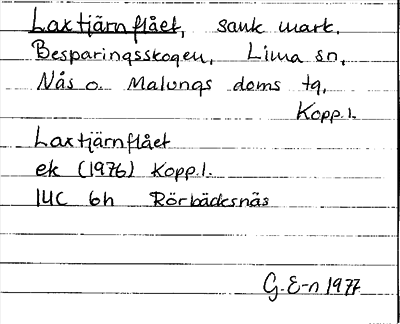 Laxtjärnflået, sank mark.
Besparingsskogen, Lima sn,
Nås o. Malungs doms tg,
Kopp.l.
Laxtjärnflået
ek (1976) Kopp.l.
14C 6h Rörbäcksnäs
G.E-n 1977